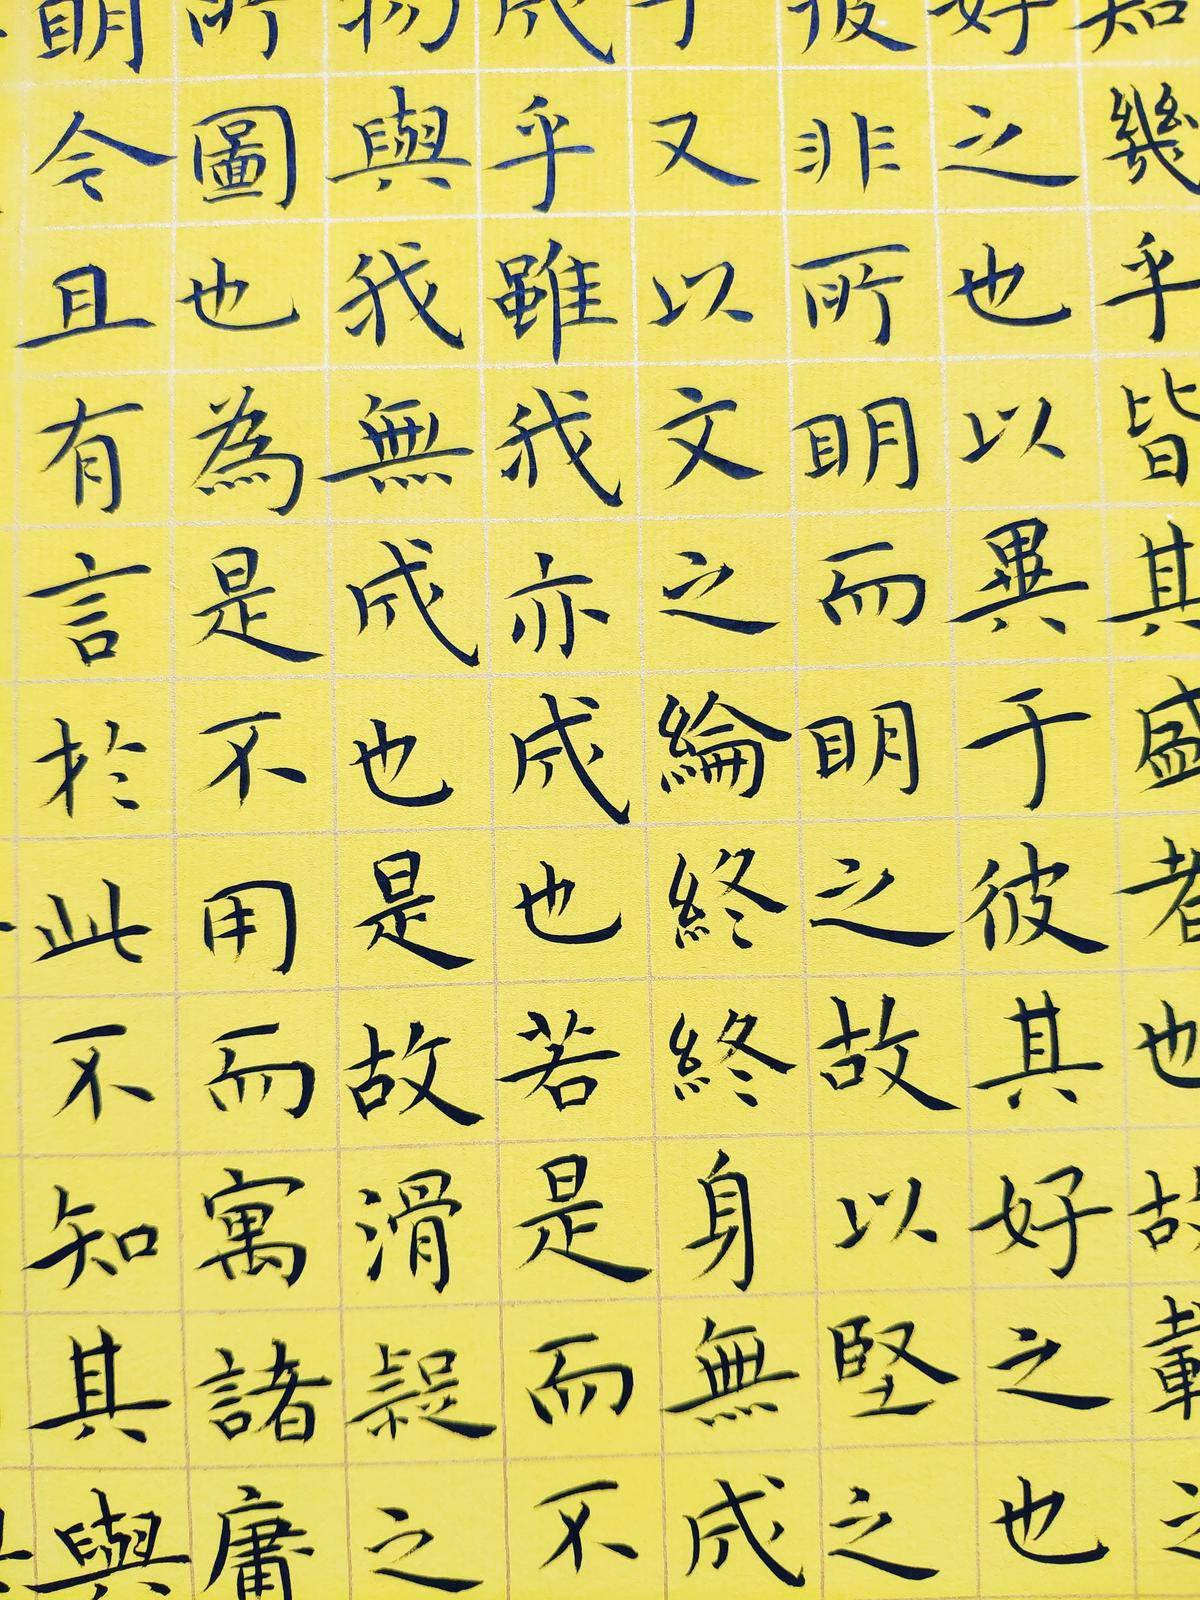 知幾乎皆其盛者也故載之
好之也以異于彼其好之也
彼非所明而明之故以堅之
子又以文之綸終終身無成
成乎雖我亦成也若是而不
物與我無成也是故滑疑之
所圖也為是不用而寓諸庸
明今且有言於此不知其與